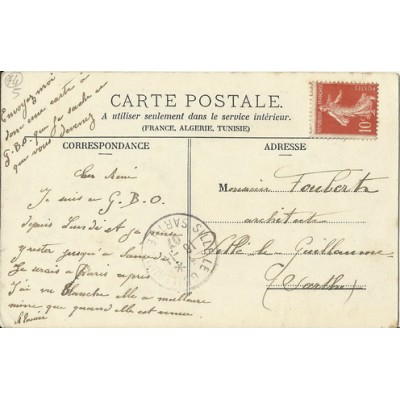 74
5
Envoyez moi
donc une carte à
G.B.O. que je sache ce
que vous devenez
CARTE POSTALE.
A utiliser seulement dans le service intérieur.
(FRANCE, ALGERIE, TUNISIE)
CORRESPONDANCE
ADRESSE
Cher Ami
Je suis à G.B.O
depuis Lundi et je pense
y rester jusqu'à Samedi
Je serais à Paris après
J'ai vu Blanche elle a meilleure
mine que quand elle est venue
Monsieur Foubert
architecte
Sillé le Guillaume
(Sarthe)
SILLÉ-LE-G
SARTHE
10